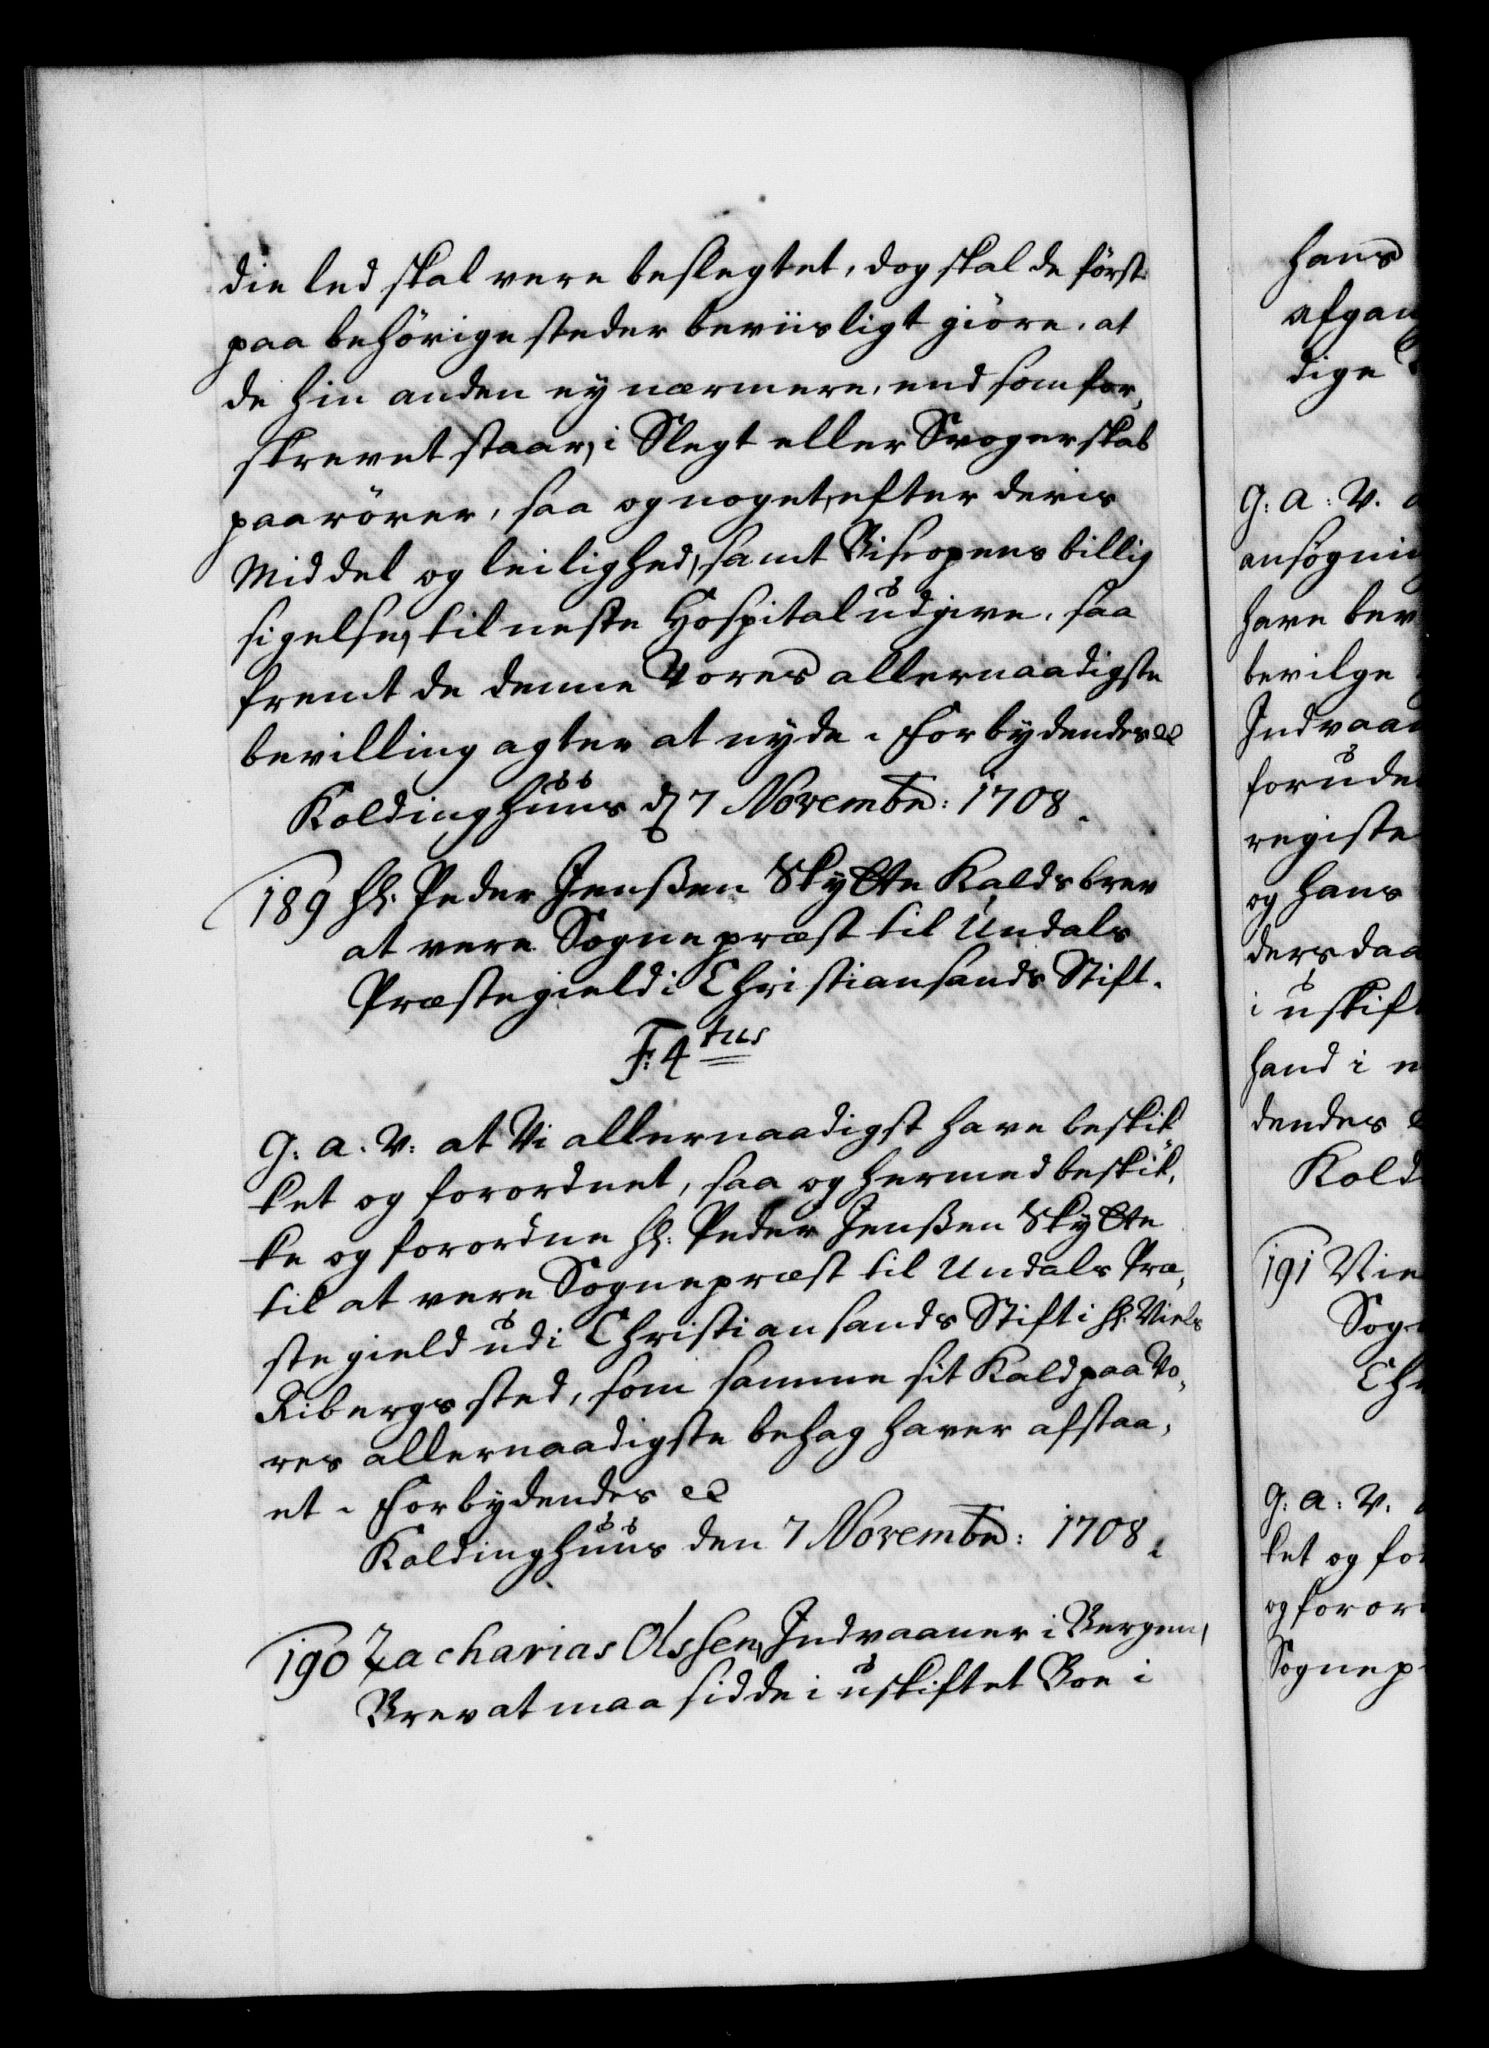 die led skal vere beslegtet, dog skal de först
paa behörige steder beviisligt giöre, at
de hin anden ey nærmere, end som for,
skrevet staar, i Slegt eller Svogerskab
paarörer, saa og noget, efter deris
Middel og leilighed, samt Biscopens billig
sigelse, til neste Hospital udgive, saa
fremt de denne Vores allernaadigste
bevilling agter at nyde. Forbydendes &c
Koldinghuus d 7 Novembr: 1708.
189 Hr: Peder Jenssen Skytte Kaldsbrev
at vere Sognepræst til Undals
Præstegield i Christiansands Stift.
F: 4tus
G: A: V: at Vi allernaadigst have beskik
ket og forordnet, saa og hermed beskik,
ke og forordne Hr: Peder Jenssen Skytte
til at vere Sognepræst til Undals Præ,
stegield udi Christiansands Stift i Hr: Niels
Ribergs sted, som samme sit Kald paa Vo,
res allernaadigste behag haver afstaa,
et. Forbydendes &c
Koldinghuus den 7 Novembr: 1708.
190 Zacharias Olssen, Indvaaner i Bergen,
Brev at maa sidde i uskiftet Boe i
hans
afgan
dige
G: A: V.
ansøgnin
have bev
bevilge
Indvaan
foruden
registe
og hans
ders daa
i uskift
hand i
dendes
Kold
191 Nie
Sog
Chr
G: A: V.
ket og for
og foror
Sognep